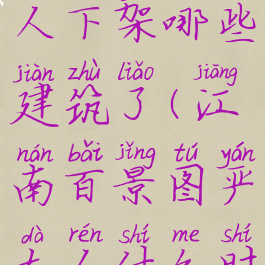 人下架哪些
jiàn zhù liǎo jiāng
建筑了(江
nán bǎi jǐng tú yán
南百景图严
dà rén shí me shí
大人什么时